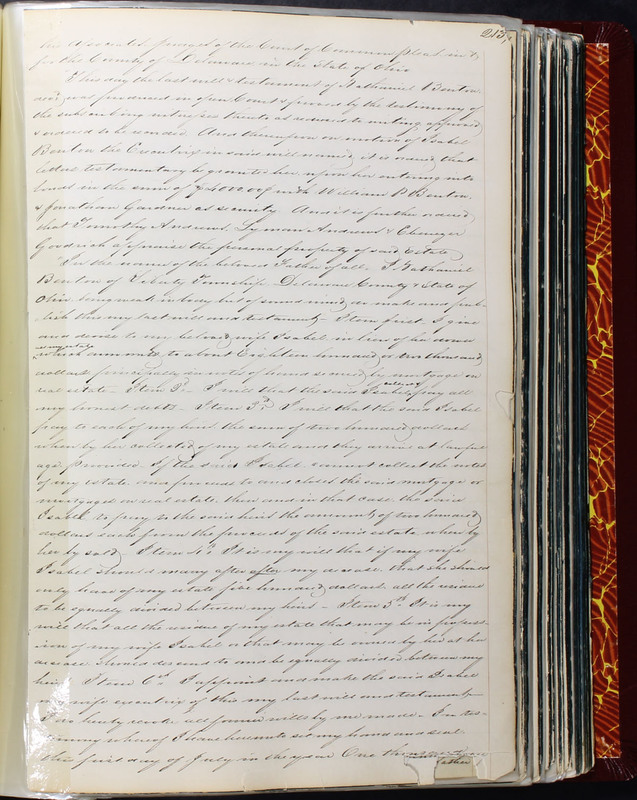 213
his associates judges of the Court of Common pleas in &
for the County of Delaware in the State of Ohio
This day the last will & testament of Nathaniel Benton
decd was produced in open Court & proved by the testimony of
the subscribing witnesses thereto as reduced to writing approved
& ordered to be recorded. And thereupon on motion of Isabel
Benton the Executrix in said will named it is ordered that
letters testamentary be granted her upon her entering into
bonds in the sum of $4000.00 with William P Benton
& Jonathan Gardner as security. And it is further ordered
that Timothy Andrews, Lyman Andrews & Ebenezer
Goodrich appraise the personal property of said Estate
In the name of the beloved Father of all. I Nathaniel
Benton of Liberty Township Delaware County & State of
Ohio being weak in body but of sound mind do make and pub-
lish this my last will and testament. Item first. I give
and devise to my beloved wife Isabel in lieu of her dower
my estate
which amounts to about Eighteen hundred or two thousand
dollars principally in notes of hand secured by mortgage on
real estate. Item 2d. I will that the said Isabel pay all
my honest debts. Item 3d. I will that the said Isabel
pay to each of my heirs the sum of two hundred dollars
when by her collected of my estate as they arrive at lawful
age provided. If the said Isabel cannot collect the notes
of my estate and proceeds to the said mortgage or
mortgages on real estate then and in that case the said
Isabel to pay to the said heirs the amount of two hundred
dollars each from the proceeds of the said estate when by
her be sold. Item 4th It is my will that if my wife
Isabel should marry after after my decease that she should
only have of my estate five hundred dollars, all the residue
to be equally divided between my heirs. Item 5th. It is my
will that all the residue of my estate that may be in possess-
ion of my wife Isabel or that may be owned by her at her
decease should descend to and be equally divided between my
heirs. Item 6th I appoint and make the said Isabel
my wife executrix of this my last will and testament
I do hereby revoke all former wills by me made. In tes-
timony whereof I have hereunto set my hand and seal
this first day of July in the year One thousand